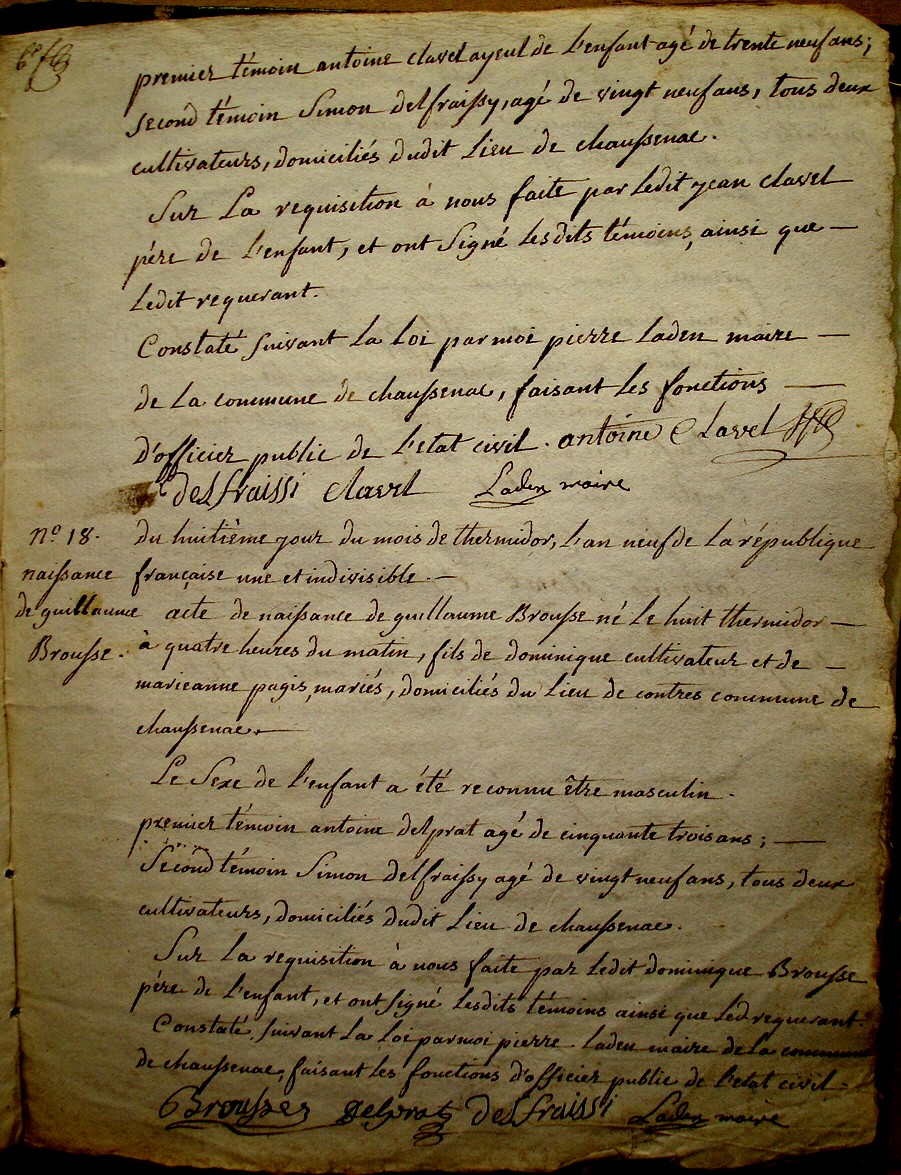 premier témoin antoine clavel ayeul de l'enfant agé de trente neuf ans;
second témoin Simon delfraissy, agé de vingt neuf ans, tous deux
cultivateurs, domiciliés dudit Lieu de chaussenac.
Sur La requisition à nous faite par Ledit jean clavel
père de l'enfant, et ont Signé Lesdits témoins, ainsi que —
Ledit requerant.
Constaté Suivant La Loi par moi pierre Laden maire —
de La commune de chaussenac, faisant Les fonctions —
d'officier public de l'etat civil. antoine Clavel
delfraissi clavel Laden maire
nº 18. du huitième jour du mois de thermidor, l'an neuf de La république
naissance française une et indivisible. —
de guillaume acte de naissance de guillaume Brousse né Le huit thermidor —
Brousse. à quatre heures du matin, fils de dominique cultivateur et de —
marieanne pagis, mariés, domiciliés du Lieu de contres commune de
chaussenac. —
Le Sexe de l'enfant a été reconnu être masculin.
premier témoin antoine delprat agé de cinquante trois ans; —
Second témoin Simon delfraissy agé de vingt neuf ans, tous deux
cultivateurs, domiciliés dudit Lieu de chaussenac.
Sur La requisition à nous faite par Ledit dominique Brousse
père de l'enfant, et ont Signé Lesdits témoins ainsi que Led. requerant.
Constaté Suivant La Loi par moi pierre Laden maire de La commune
de chaussenac, faisant Les fonctions d'officier public de l'etat civil —
Brousses delprat delfraissi Laden maire